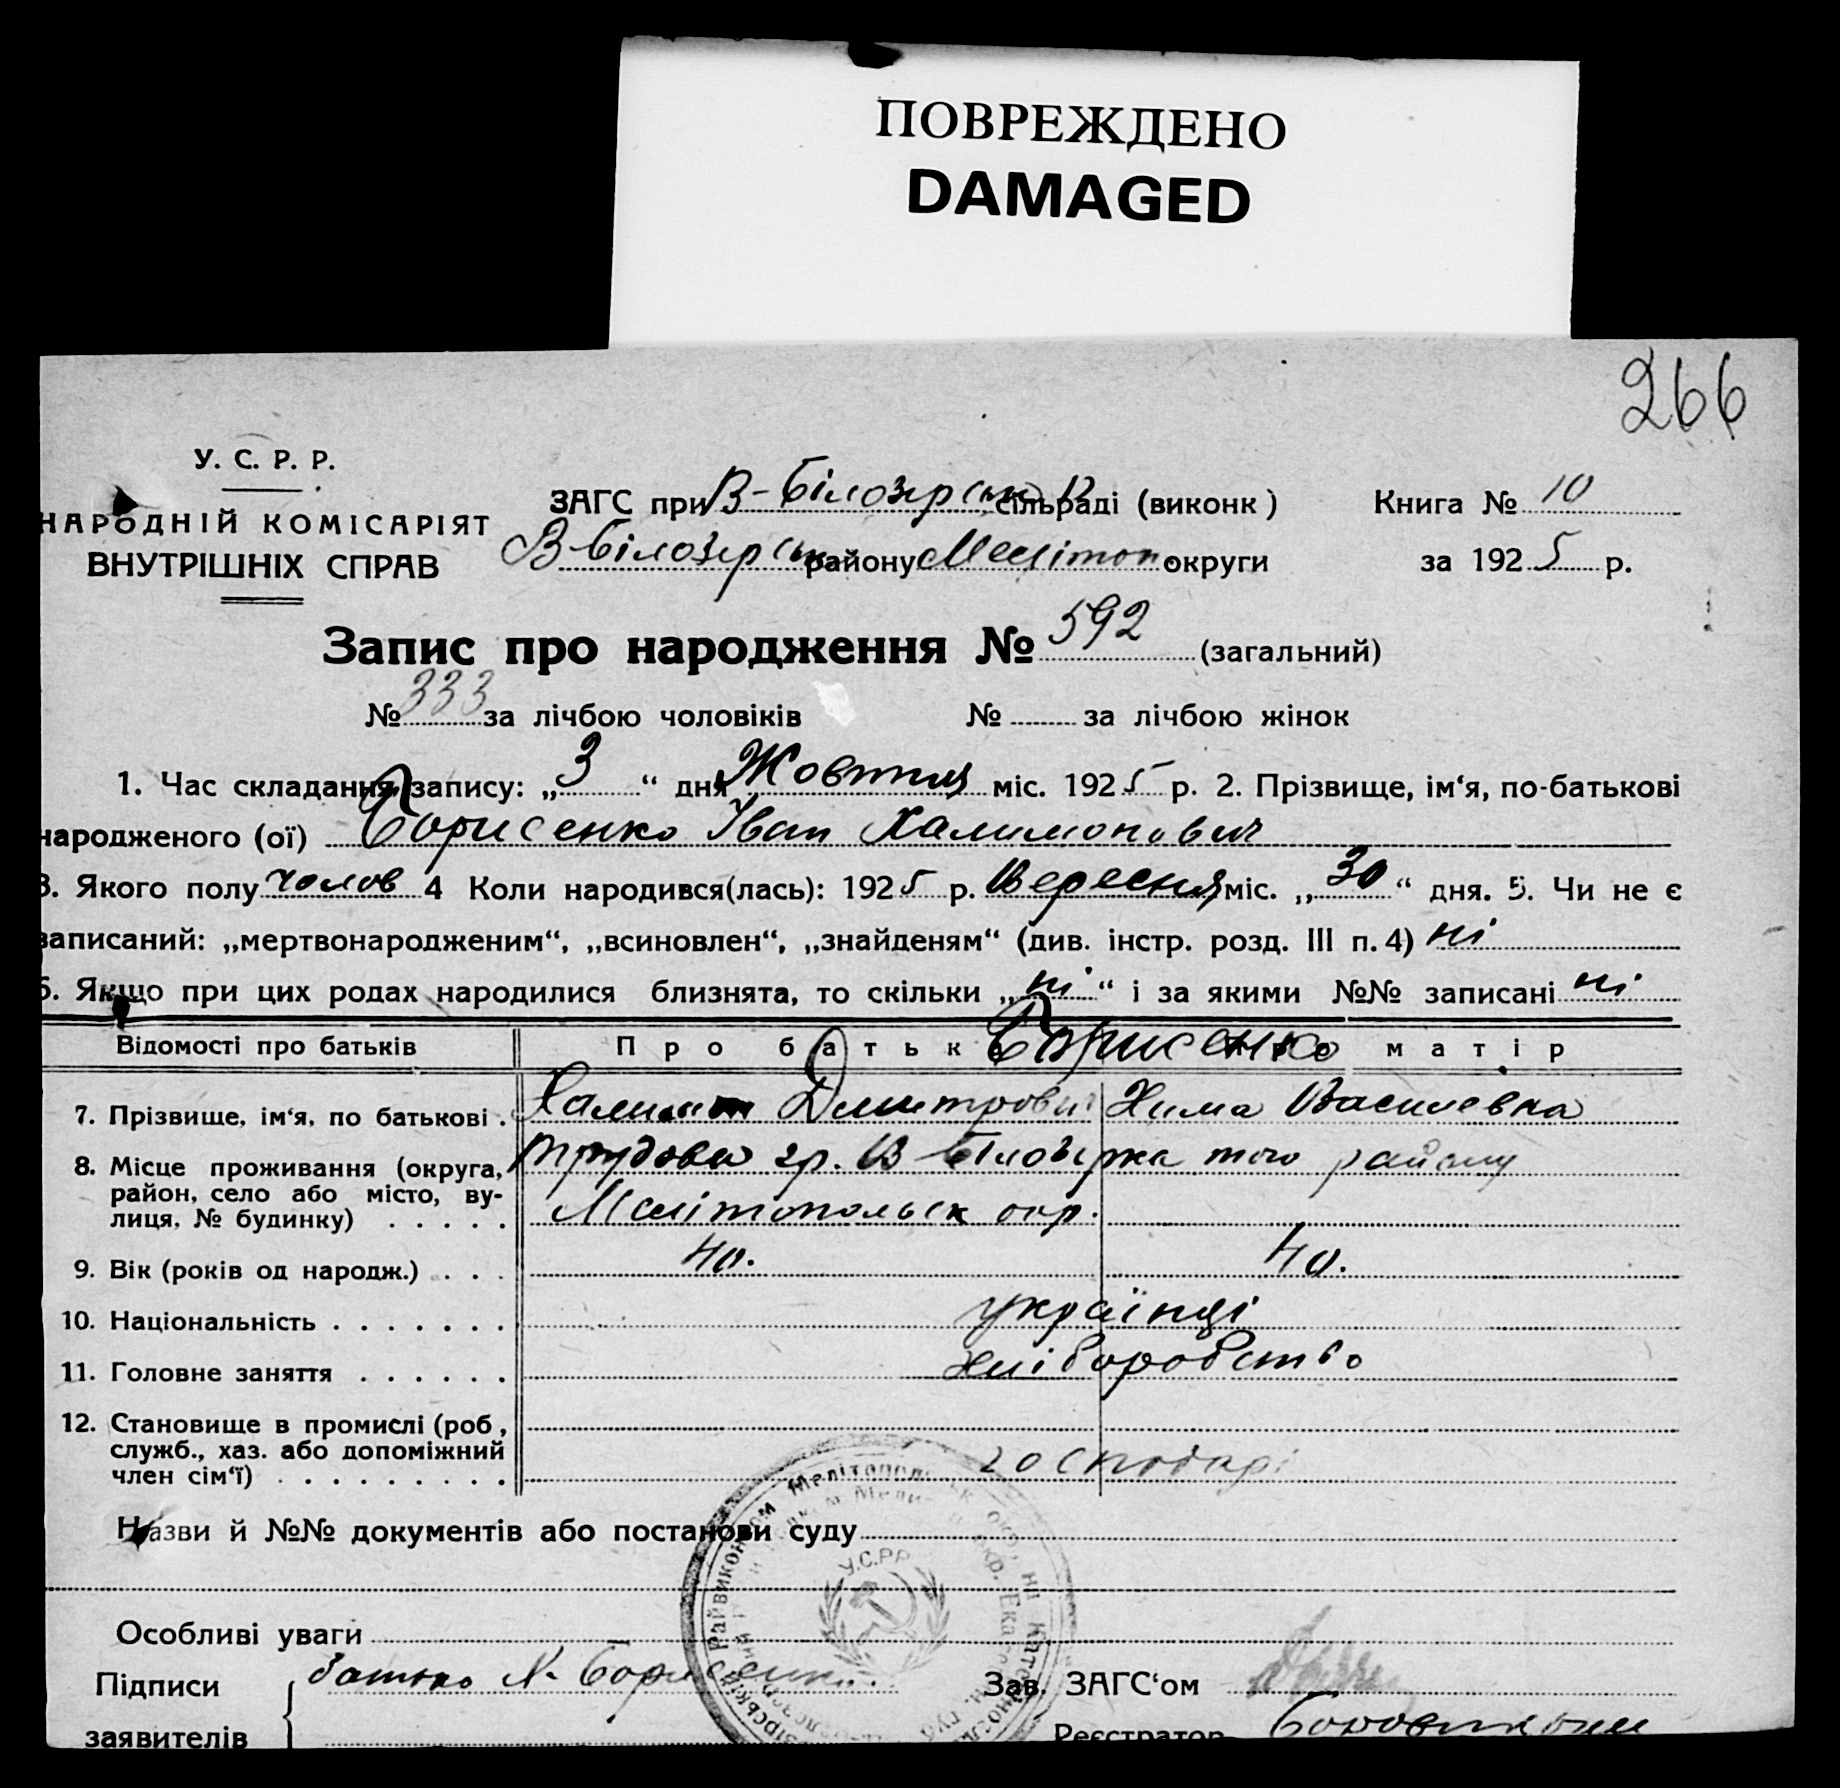 ПОВРЕЖДЕНО
DAMAGED
266
У. С. Р. Р.
НАРОДНІЙ КОМІСАРІЯТ
ВНУТРІШНІХ СПРАВ
ЗАГС при В-Білозірськ сільраді (виконк) Книга № 10
В-Білозірськ району Мелітоп. округи за 1925 р.
Запис про народження № 592 (загальний)
№ 333 за лічбою чоловіків № за лічбою жінок
1. Час складання запису: „3“ дня Жовтня міс. 1925 р. 2. Прізвище, ім‘я, по-батькові
народженого (ої) Борисенко Іван Халимонович
3. Якого полу чолов 4 Коли народився(лась): 1925 р. Вересня міс. „30“ дня. 5. Чи не є
записаний: „мертвонародженим“, „всиновлен“, „знайденям“ (див. інстр. розд. III п. 4) ні
6. Якщо при цих родах народилися близнята, то скільки „ні“ і за якими №№ записані ні
Відомості про батьків Про батьк Борисенко матір
7. Прізвище, ім‘я, по батькові . Халимон Дмитрович Хима Василевна
8. Місце проживання (округа, район, село або місто, ву-лиця, № будинку) . . . . . гр. В Білозірка того району
Мелітопольск окр.
9. Вік (років од народж.) . . . 40. 40.
10. Національність . . . . . . . українці
11. Головне заняття . . . . . . хліборобство
12. Становище в промислі (роб, служб., хаз. або допоміжний член сім‘ї) . . . . . . . . . господарі
Назви й №№ документів або постанови суду
Особливі уваги
Підписи батько Х. Борисенко. Зав. ЗАГС‘ом
заявителів Реєстратор
Райвиконком Мелітопольськ
У.С.Р.Р.